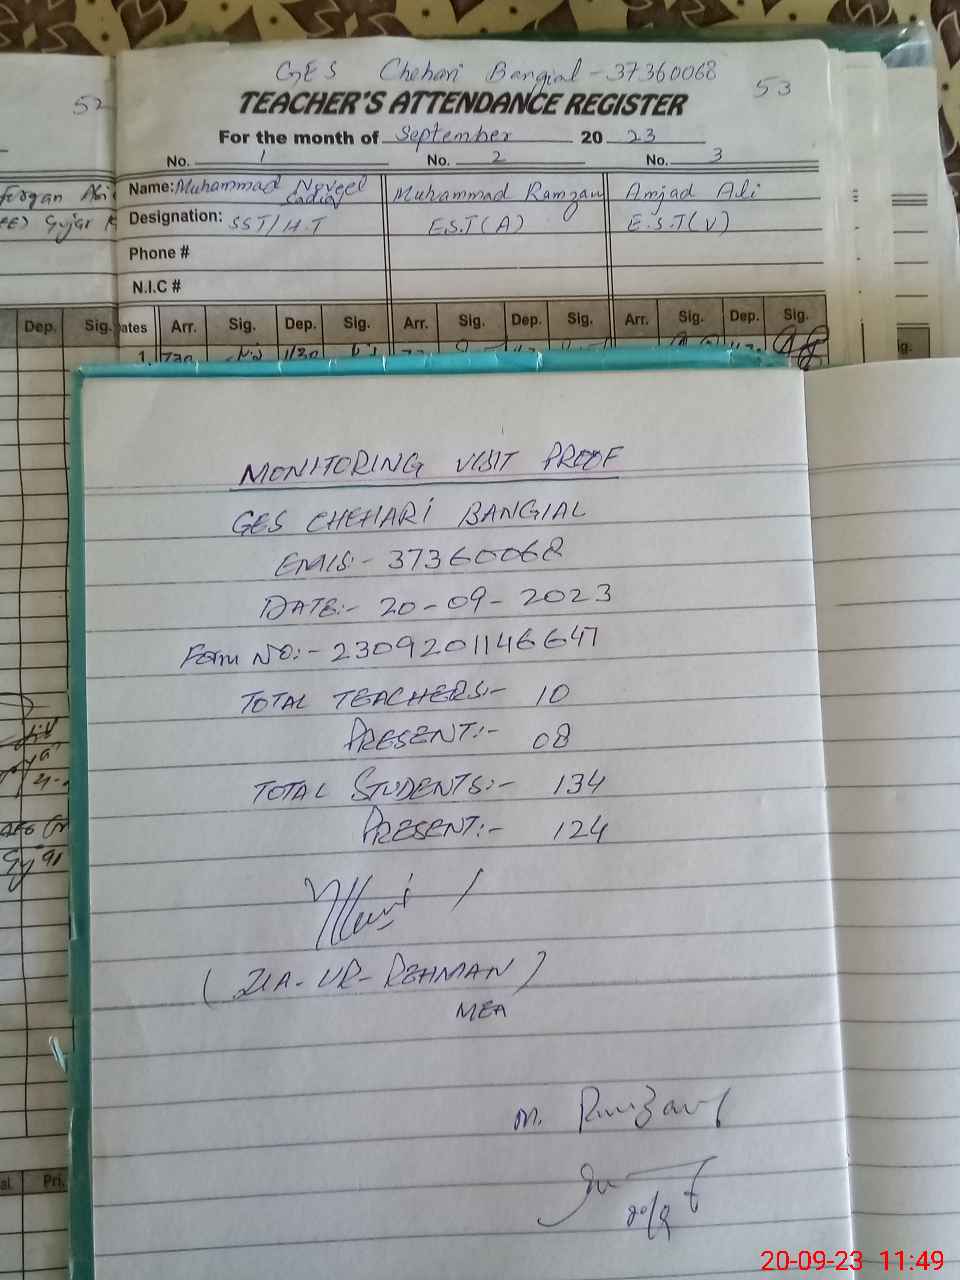 GES Chehari Bangial - 37360068
52
53
TEACHER'S ATTENDANCE REGISTER
For the month of September 20 23
No. 1 No. 2 No. 3
Name: Muhammad Muhammad Ramzan Amjad Ali
Designation: SST/H.T E.S.T(A) E.S.T(V)
Phone #
N.I.C #
Dep. Sig. ates Arr. Sig. Dep. Sig. Arr. Sig. Dep. Sig. Arr. Sig. Dep. Sig.
1. 730 1130
MONITORING VISIT PROOF
GES CHEHARI BANGIAL
EMIS:- 37360068
DATE:- 20-09-2023
Form NO:- 2309201146647
TOTAL TEACHERS:- 10
PRESENT:- 08
TOTAL STUDENTS:- 134
PRESENT:- 124
(ZIA-UR-REHMAN)
MEA
M. Ramzan
20/9
Pri.
20-09-23 11:49